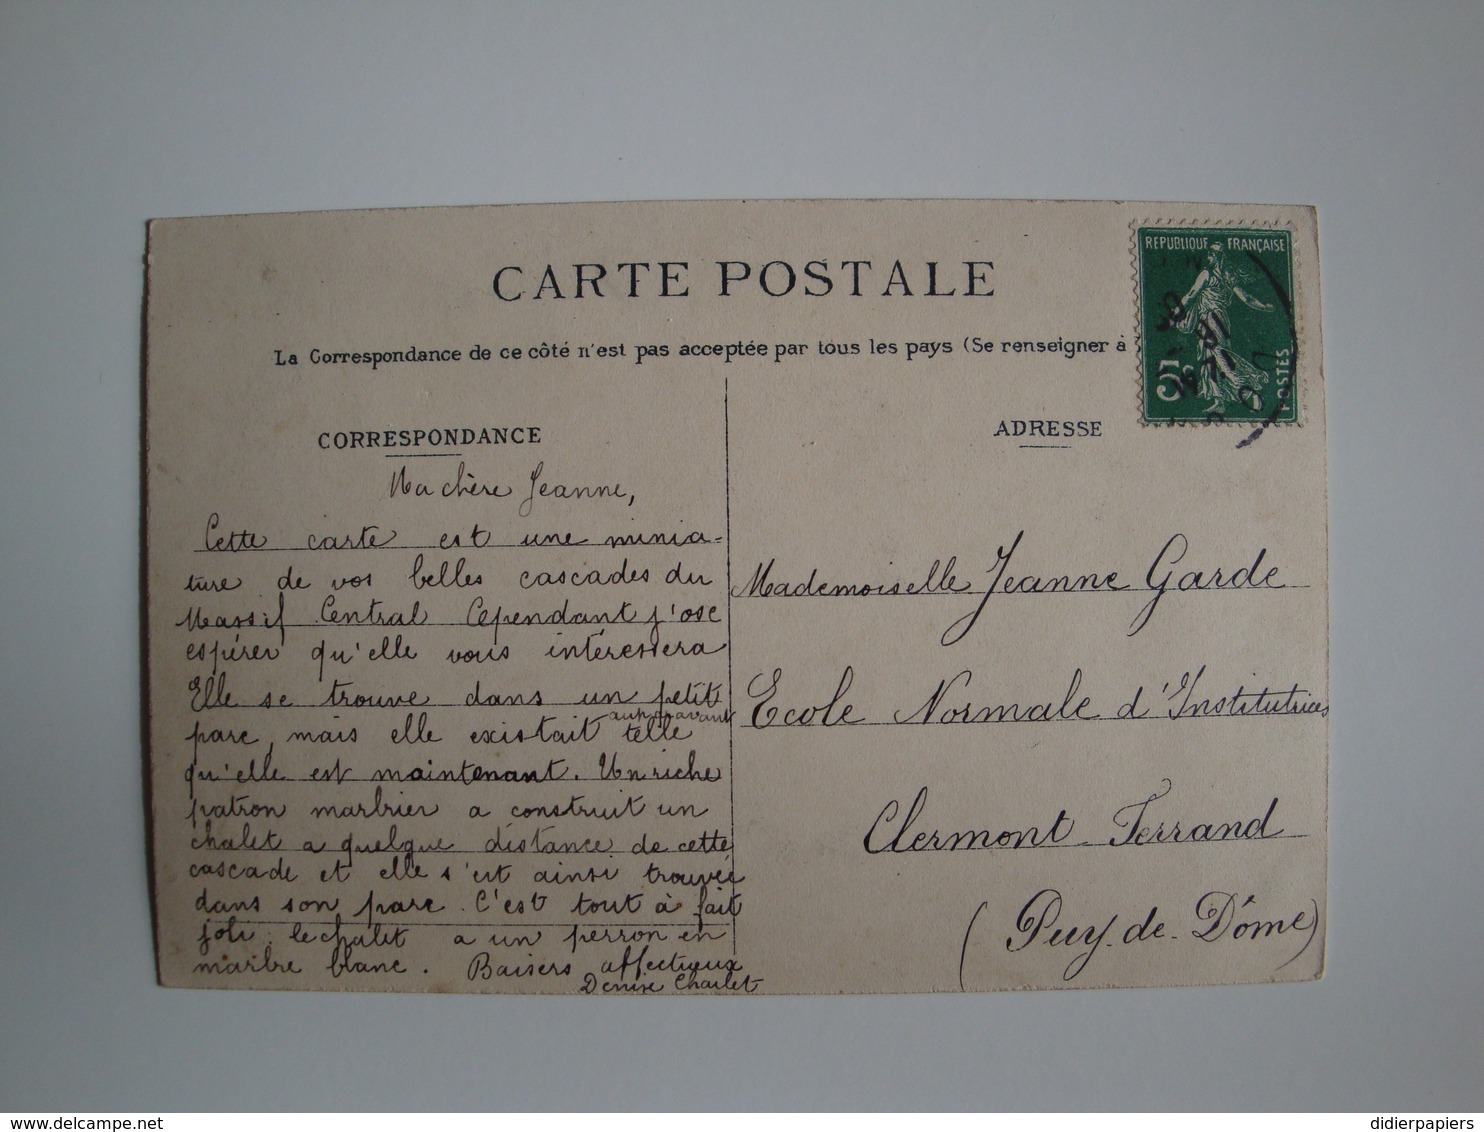 CARTE POSTALE
La Correspondance de ce côté n'est pas acceptée par tous les pays (Se renseigner à
REPUBLIQUE FRANÇAISE
5
POSTES
CORRESPONDANCE
ADRESSE
Ma chère Jeanne,
Cette carte est une minia-
ture de vos belles cascades du
Massif Central Cependant j'ose
espérer qu'elle vous intéressera
Elle se trouve dans un petit
parc, mais elle existait auparavant telle
qu'elle est maintenant. Un riche
patron marbrier a construit un
chalet a quelque distance de cette
cascade et elle s'est ainsi trouvée
dans son parc. C'est tout à fait
joli; le chalet a un perron en
marbre blanc. Baisers affectueux
Denise Charlet
Mademoiselle Jeanne Garde
Ecole Normale d'Institutrices
Clermont-Ferrand
(Puy-de-Dôme)
delcampe.net
didierpapiers